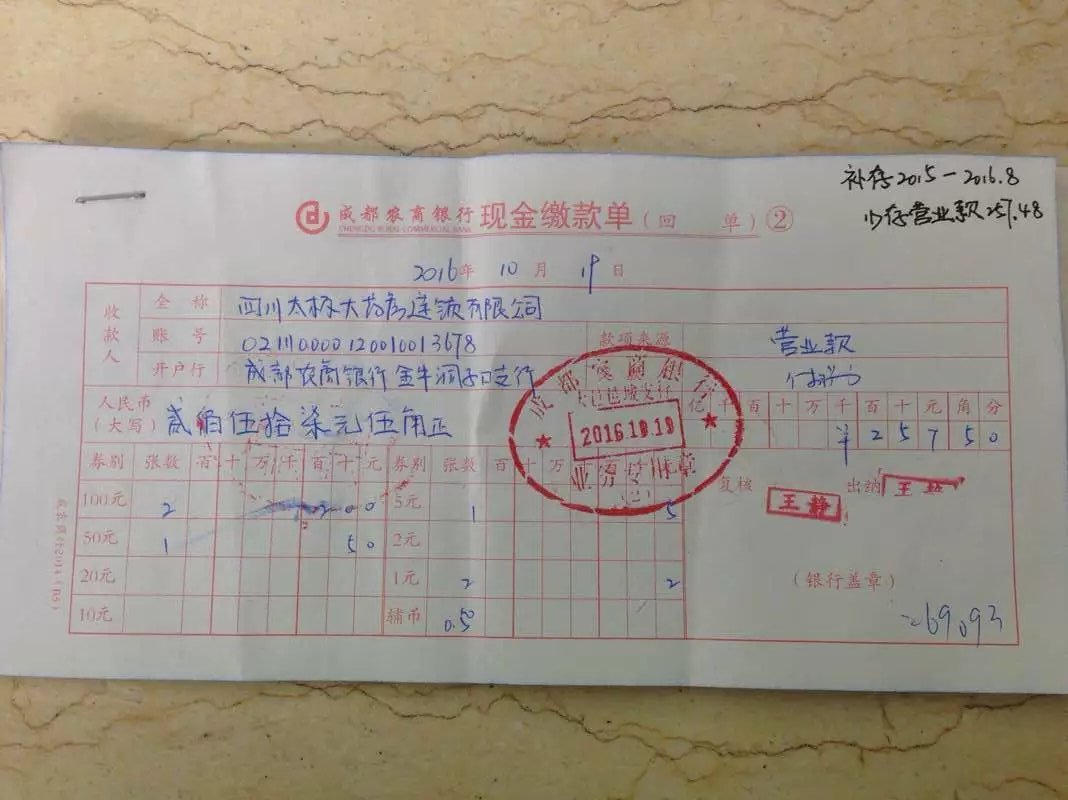 补存2015-2016.8
少存营业款257.48
成都农商银行 现金缴款单(回 单)②
CHENGDU RURAL COMMERCIAL BANK
2016年 10月 19日
收款人
全 称 四川太极大药房连锁有限公司
账 号 02110000120010013678 款项来源 营业款
开户行 成都农商银行金牛洞子口支行
人民币(大写) 贰佰伍拾柒元伍角正
亿 千 百 十 万 千 百 十 元 角 分
¥ 2 5 7 5 0
券别 张数 百 十 万 千 百 十 元 券别 张数 百 十 万
100元 2 200 5元 1 5
50元 1 50 2元
20元 1元 2 2
10元 辅币 0.50
复核 王静 出纳
(银行盖章)
成都农商银行
2016.10.19
业务专用章
(2)